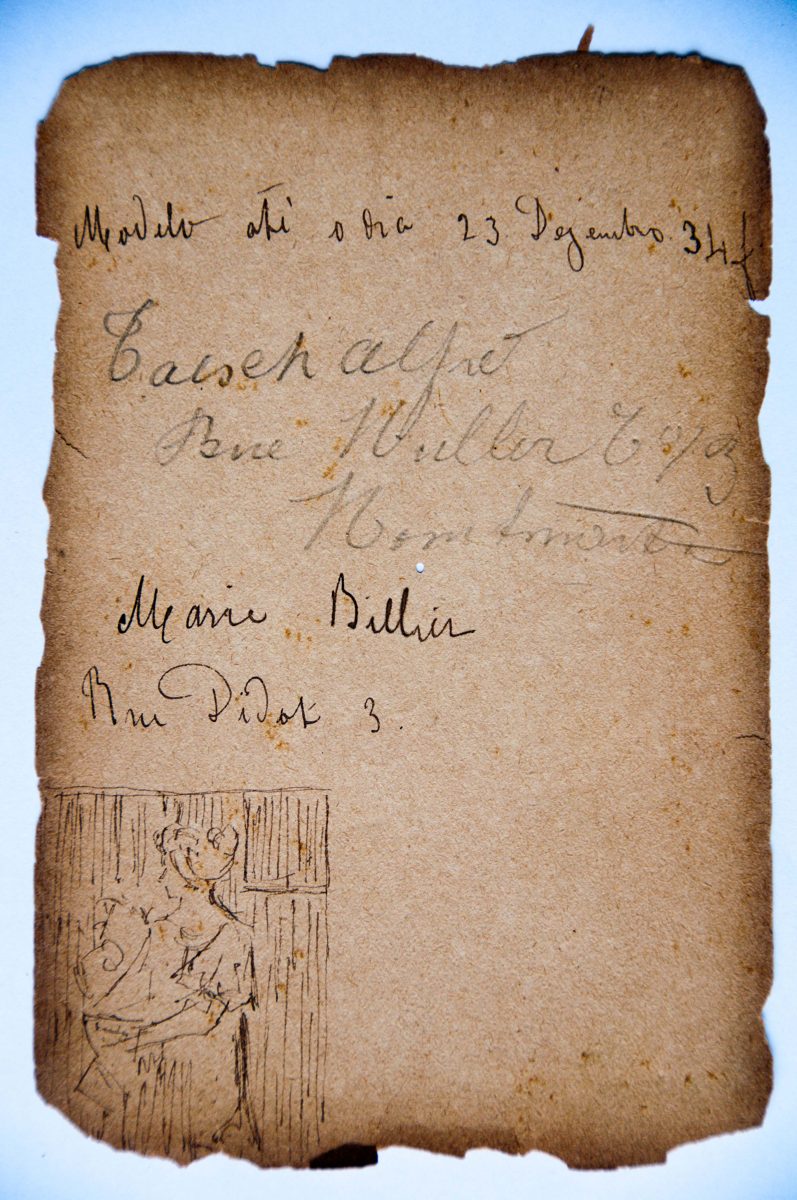 Modelo até o dia 23 Dezembro. 34f
Alfred
Rue Muller
Montmartre
Marie Billier
Rue Didot 3.